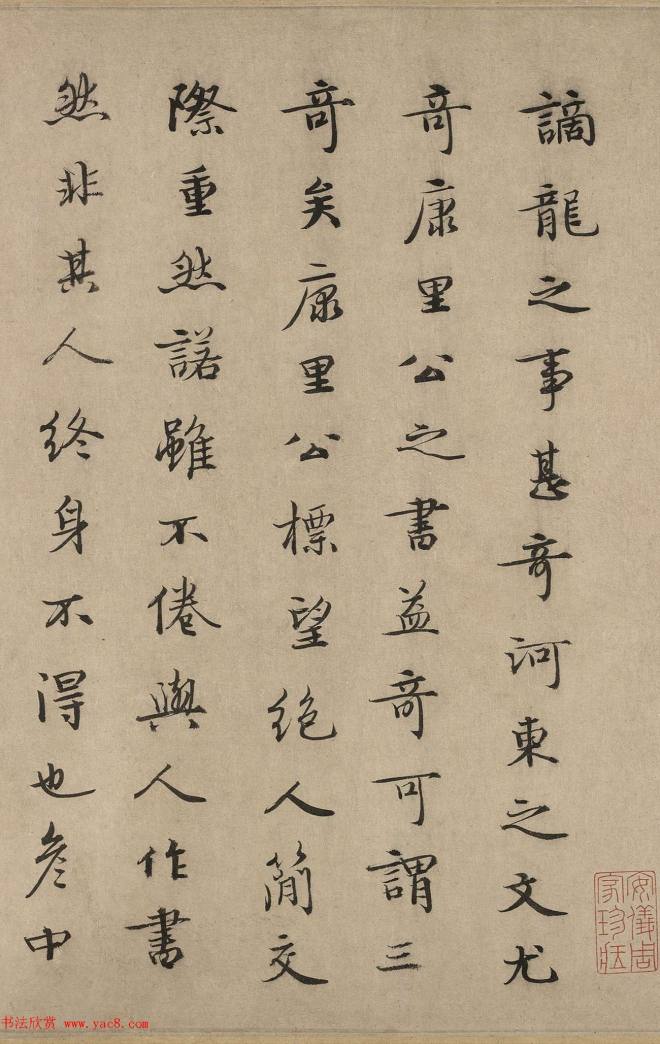 謫龍之事甚奇河東之文尤
奇康里公之書益奇可謂三
奇矣康里公標望絕人簡交
際重然諾雖不倦與人作書
然非其人終身不得也彦中
安儀周
家珍藏
书法欣赏 www.yac8.com